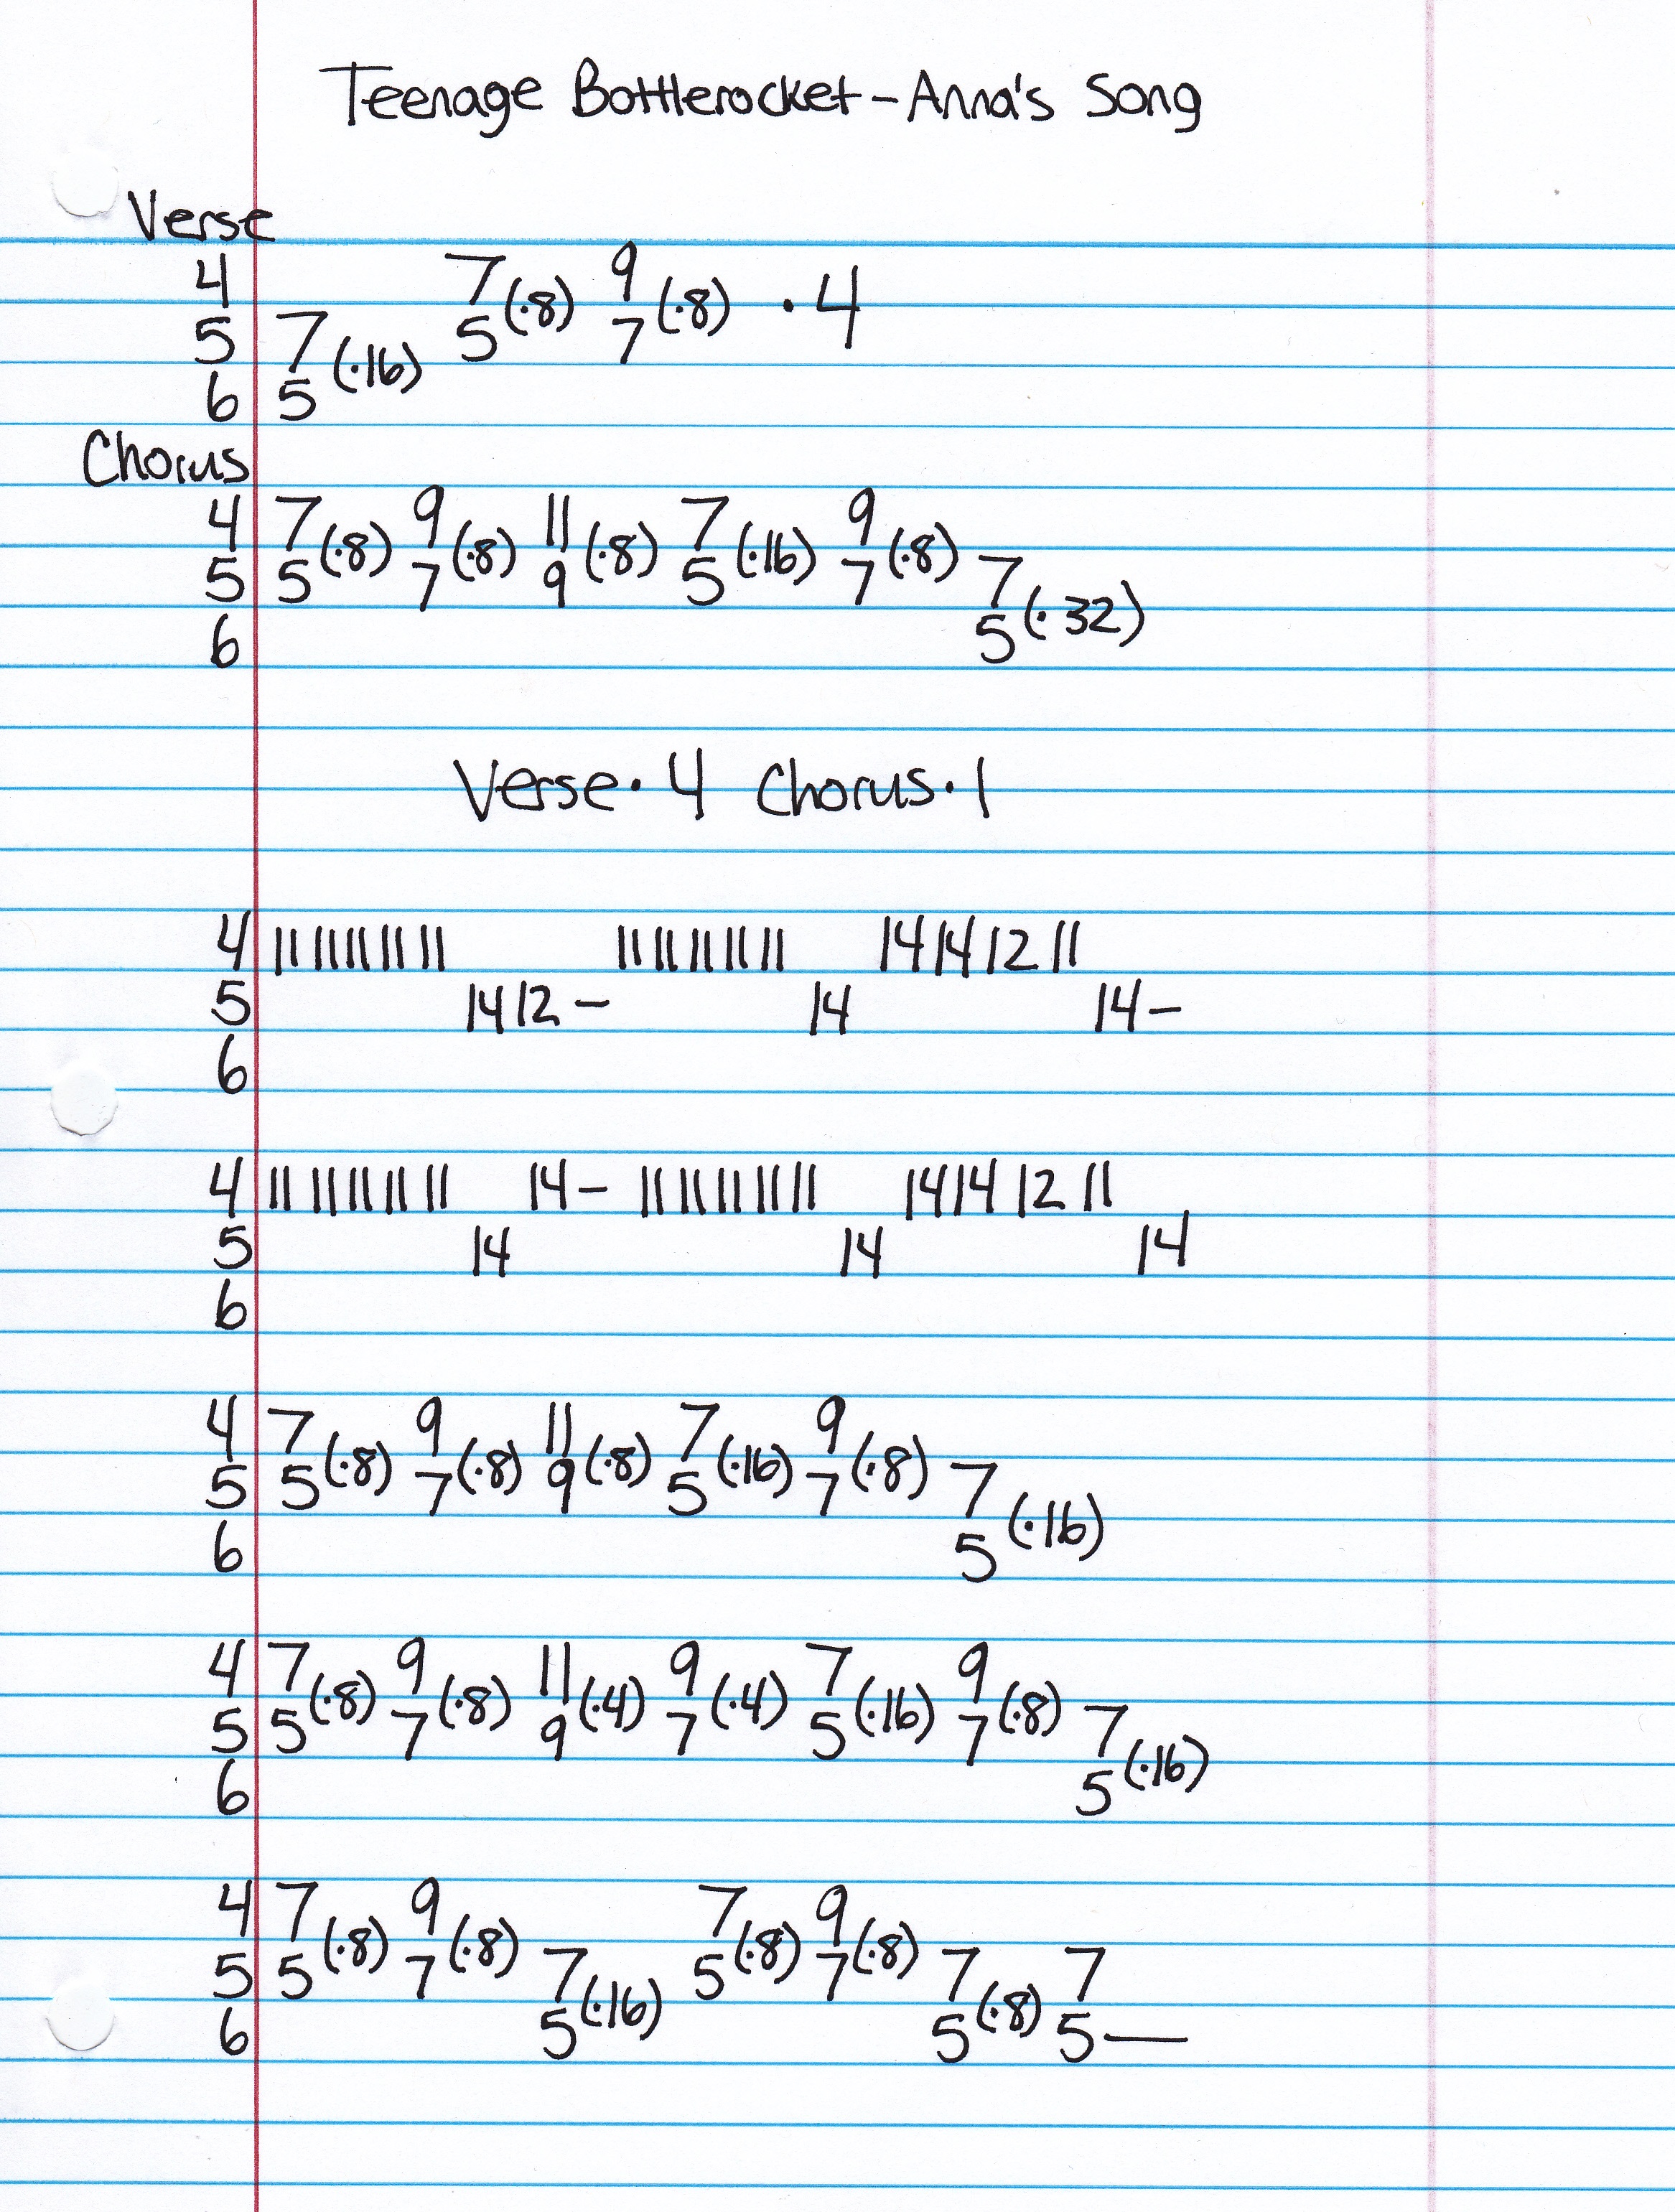 Teenage Bottlerocket - Anna's Song
Verse
4 7 (·8) 9 (·8) · 4
5 7 (·16) 5 7
6 5
Chorus
4 7 (·8) 9 (·8) 11 (·8) 7 (·16) 9 (·8)
5 5 7 9 5 7 7 (·32)
6 5
Verse · 4 Chorus · 1
4 11 11 11 11 11 11 11 11 11 11 14 14 12 11
5 14 12 — 14 14 —
6
4 11 11 11 11 11 14 — 11 11 11 11 11 14 14 12 11
5 14 14 14
6
4 7 (·8) 9 (·8) 11 (·8) 7 (·16) 9 (·8)
5 5 7 9 5 7 7 (·16)
6 5
4 7 (·8) 9 (·8) 11 (·4) 9 (·4) 7 (·16) 9 (·8)
5 5 7 9 7 5 7 7 (·16)
6 5
4 7 (·8) 9 (·8) 7 (·8) 9 (·8)
5 5 7 7 (·16) 5 7 7 (·8) 7
6 5 5 5 —